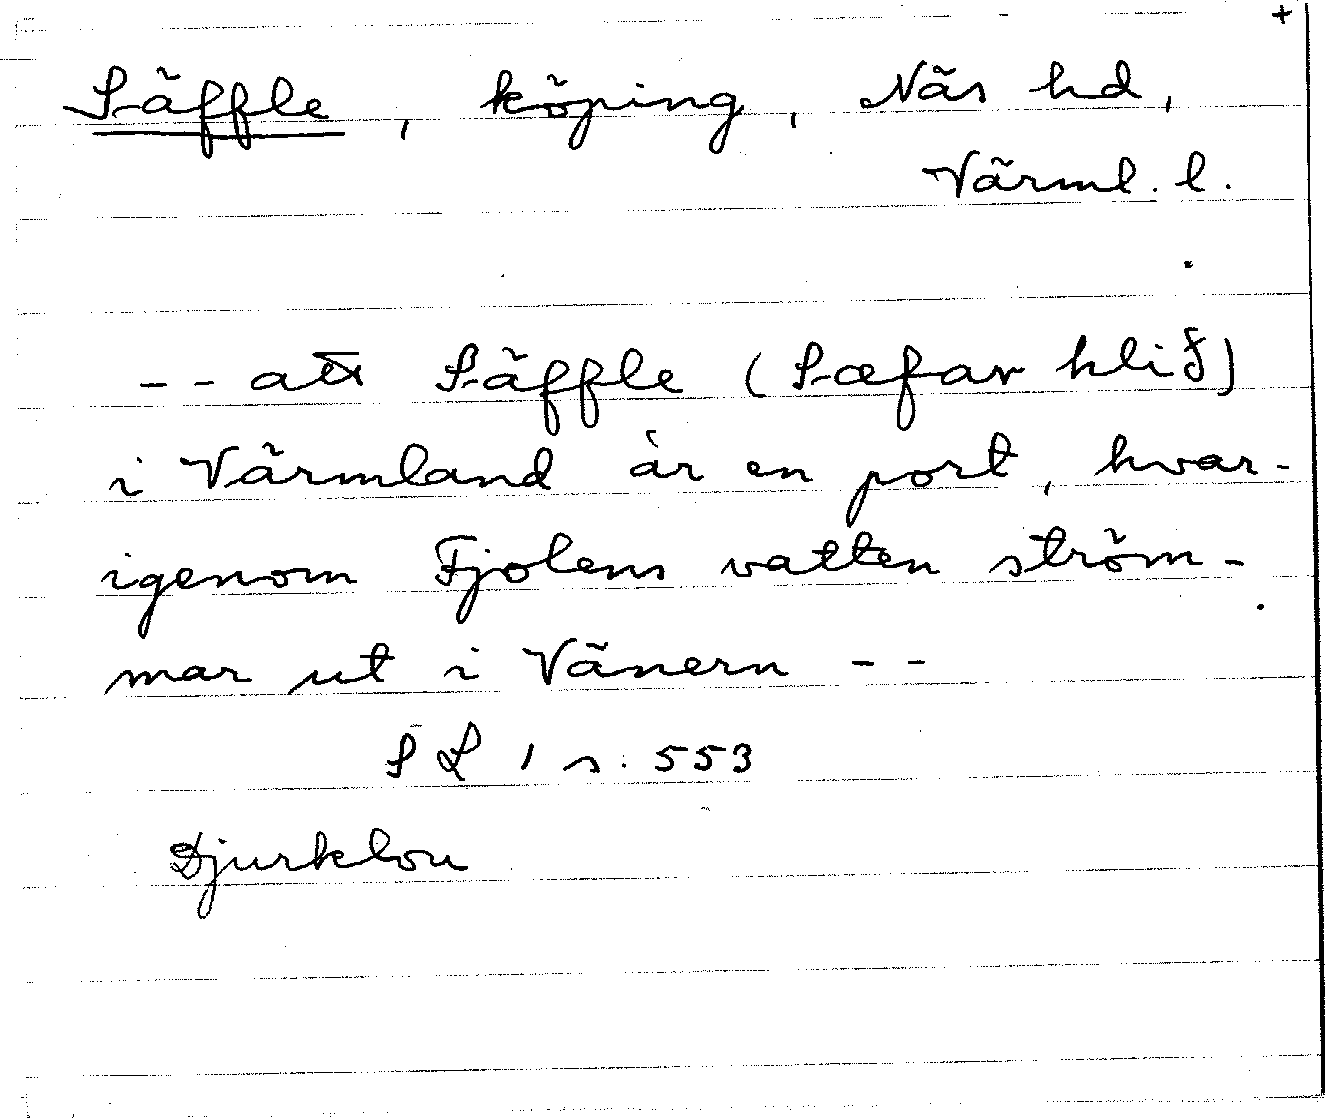 +
Säffle, köping, Näs hd,
Värml. l.
-- att Säffle (Sæfar hlið)
i Värmland är en port, hvar-
igenom Fjolens vatten ström-
mar ut i Vänern --
SL 1 s. 553
Djurklou